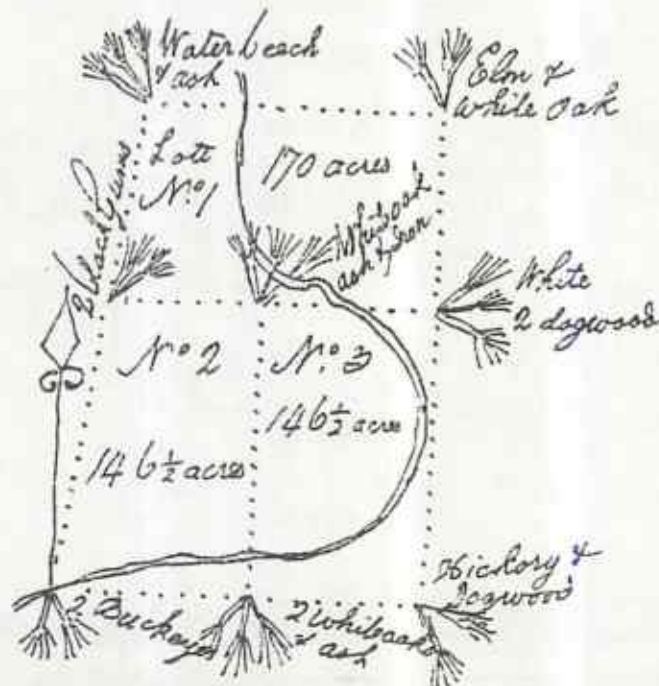 Water beach
& ash
Elm &
White Oak
Lott
No. 1
170 acres
2 black Gums
Whiteoak
ash &
White
2 dogwoods
No. 2
No. 3
146½ acres
146½ acres
Hickory &
Dogwood
2 Buckeyes
2 Whiteoaks
& ash